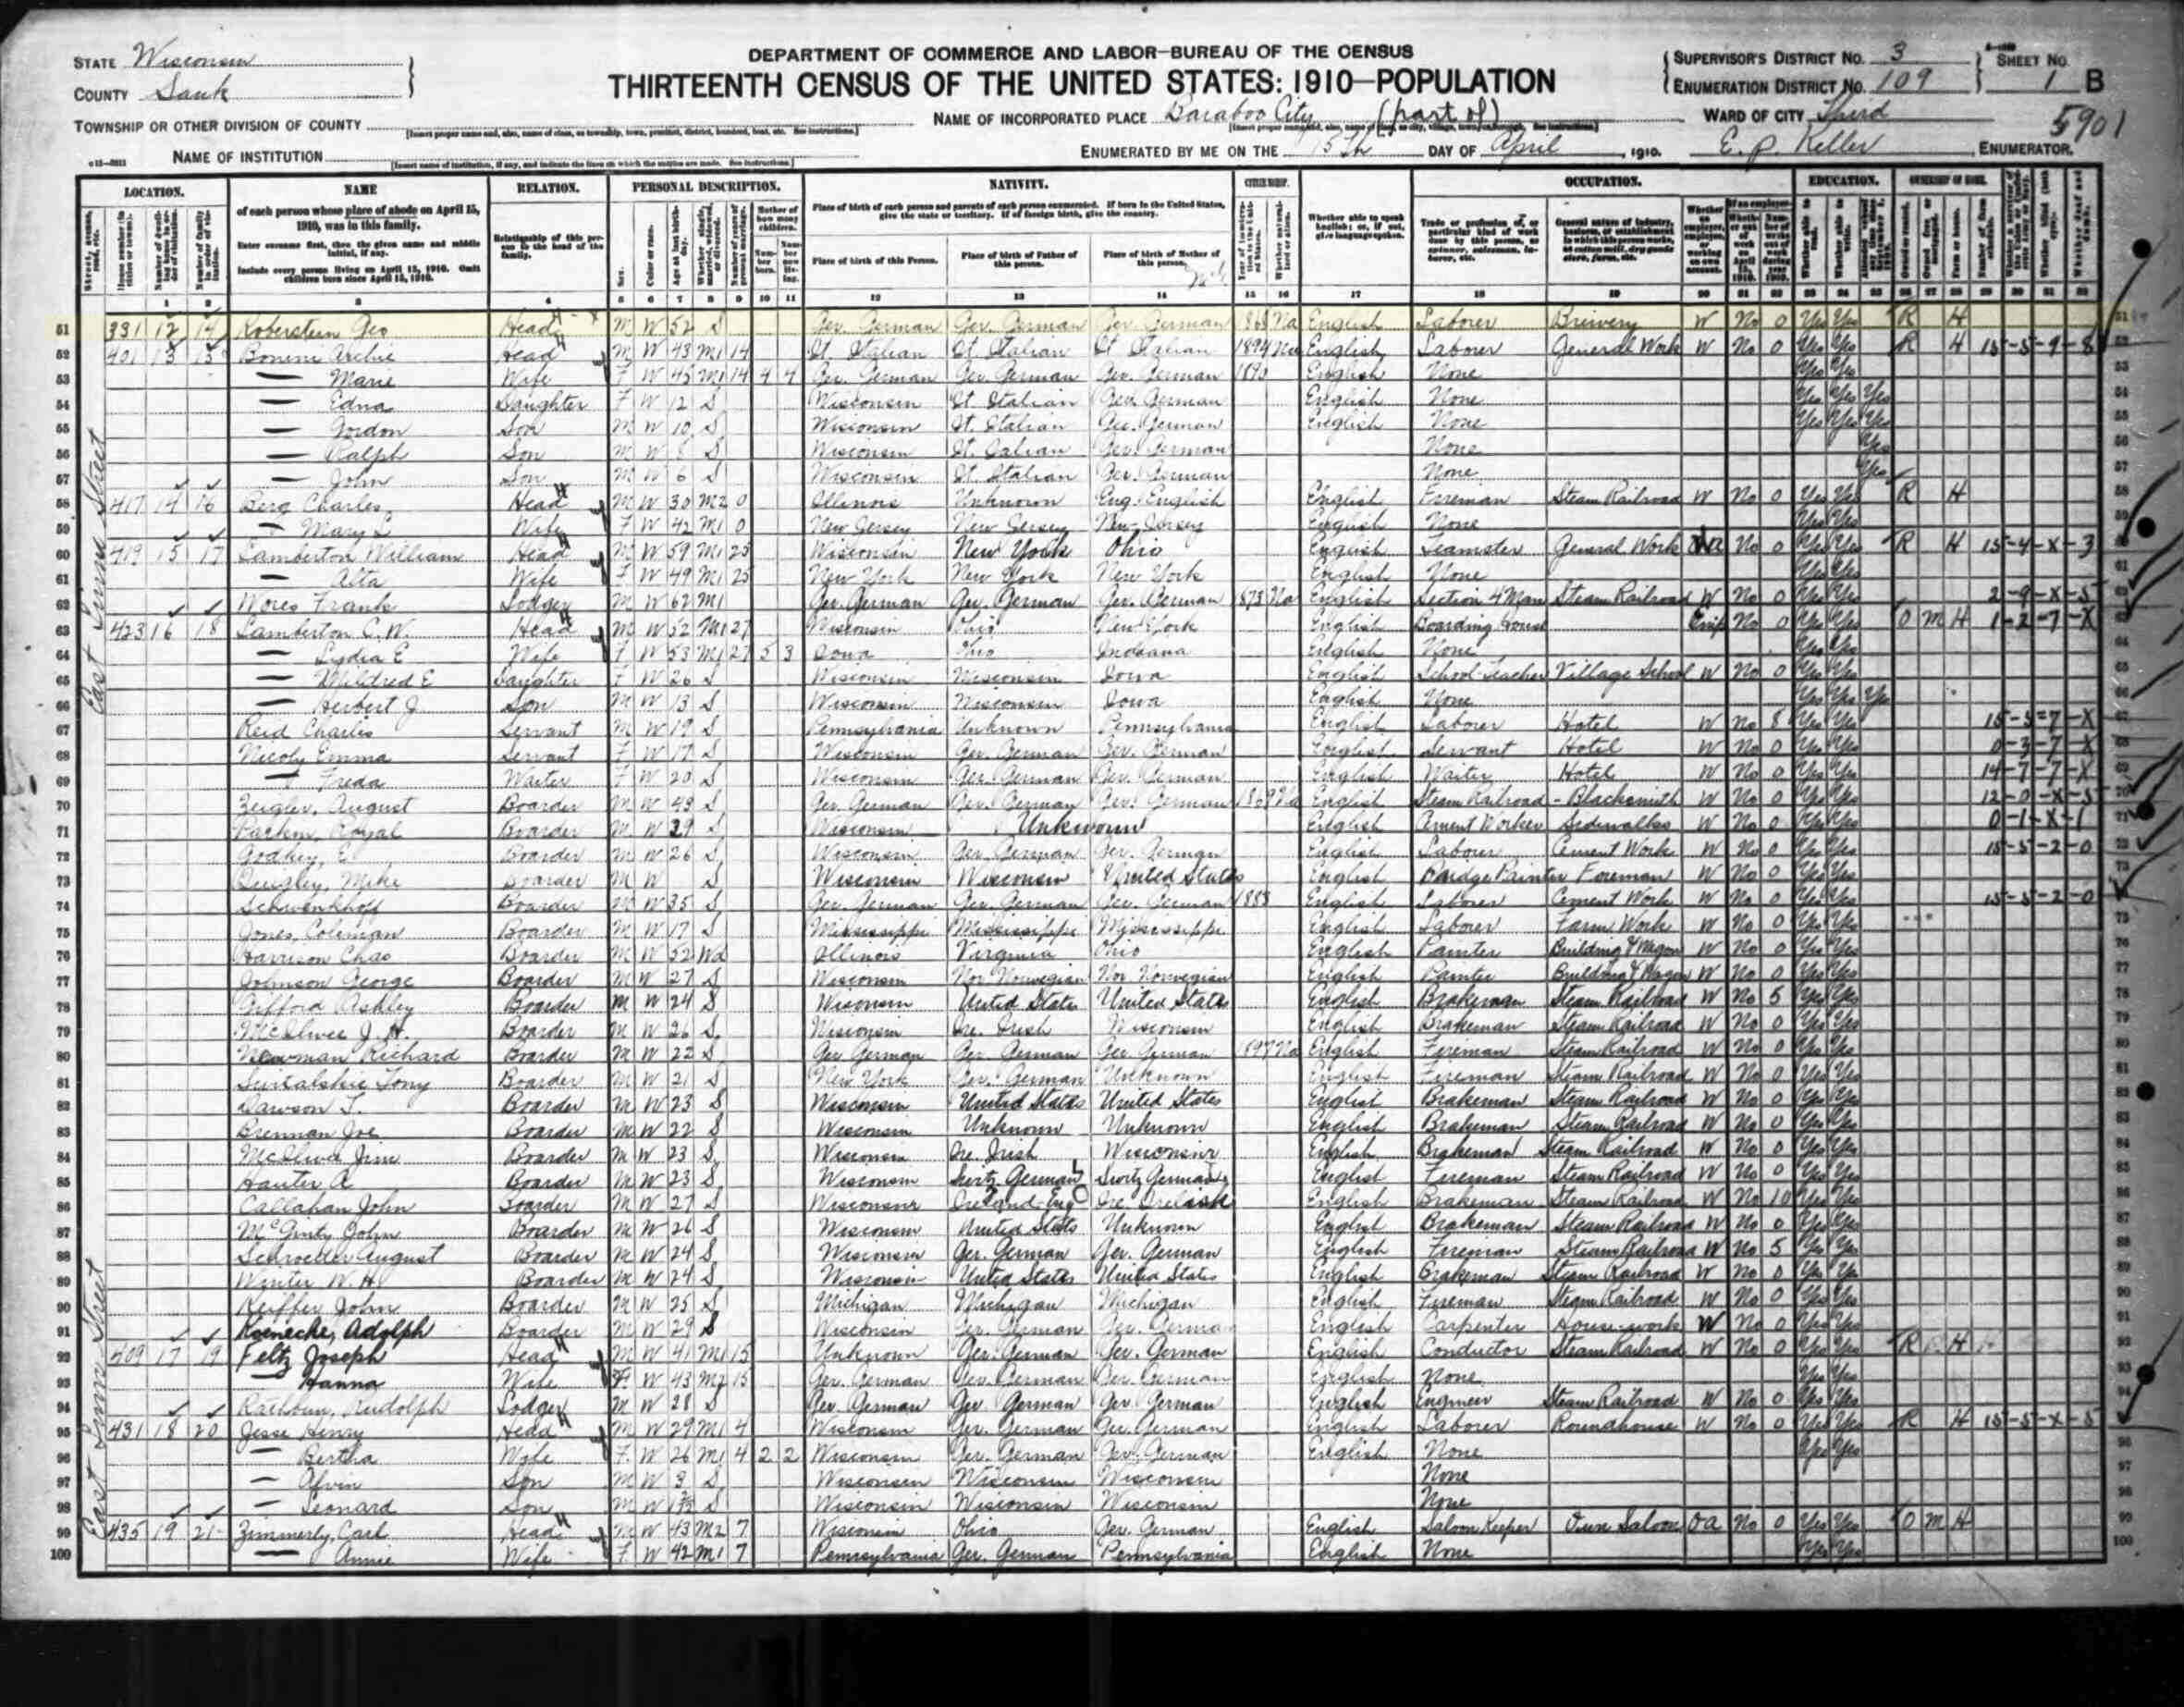 STATE Wisconsin
COUNTY Sauk
TOWNSHIP OR OTHER DIVISION OF COUNTY
NAME OF INSTITUTION
DEPARTMENT OF COMMERCE AND LABOR—BUREAU OF THE CENSUS
THIRTEENTH CENSUS OF THE UNITED STATES: 1910—POPULATION
NAME OF INCORPORATED PLACE Baraboo City (part of)
ENUMERATED BY ME ON THE 15th DAY OF April, 1910. E. P. Keller, ENUMERATOR.
SUPERVISOR'S DISTRICT NO. 3
ENUMERATION DISTRICT NO. 109
SHEET NO. 1 B
WARD OF CITY Third
5901
LOCATION. NAME RELATION. PERSONAL DESCRIPTION. NATIVITY. CITIZENSHIP. OCCUPATION. EDUCATION. OWNERSHIP OF HOME.
of each person whose place of abode on April 15, 1910, was in this family.
Enter surname first, then the given name and middle initial, if any.
Include every person living on April 15, 1910. Omit children born since April 15, 1910.
Relationship of this person to the head of the family.
Place of birth of this Person. Place of birth of Father of this person. Place of birth of Mother of this person.
East Linn Street
51 331 12 14 Koberstein Geo Head M W 52 S Ger. German Ger. German Ger. German 1868 Na English Laborer Brewery W No 0 Yes Yes R H
52 401 13 15 Archie Head M W 43 M1 14 It. Italian It. Italian It. Italian 1894 Na English Laborer General Work W No 0 Yes Yes R H 15-5-9-8
53 — Marie Wife F W 45 M1 14 4 4 Ger. German Ger. German Ger. German 1890 English None Yes Yes
54 — Edna Daughter F W 12 S Wisconsin It. Italian Ger. German English None Yes Yes Yes
55 — Gordon Son M W 10 S Wisconsin It. Italian Ger. German English None Yes Yes Yes
56 — Ralph Son M W 8 S Wisconsin It. Italian Ger. German None Yes
57 — John Son M W 6 S Wisconsin It. Italian Ger. German None Yes
58 417 14 16 Berg Charles Head M W 30 M2 0 Illinois Unknown Eng. English English Fireman Steam Railroad W No 0 Yes Yes R H
59 — Mary L Wife F W 42 M1 0 New Jersey New Jersey New Jersey English None Yes Yes
60 419 15 17 Lamberton William Head M W 59 M1 25 Wisconsin New York Ohio English Teamster General Work No 0 Yes Yes R H 15-4-X-3
61 — Alta Wife F W 49 M1 25 New York New York New York English None Yes Yes
62 Frank Lodger M W 62 M1 Ger. German Ger. German Ger. German 1873 Na English Section Man Steam Railroad W No 0 Yes Yes 2-9-X-5
63 423 16 18 Lamberton C. W. Head M W 52 M1 27 Wisconsin Ohio New York English Boarding house Emp No 0 Yes Yes O M H 1-2-7-X
64 — Lydia E Wife F W 53 M1 27 5 3 Iowa Ohio Indiana English None Yes Yes
65 — Mildred E Daughter F W 26 S Wisconsin Wisconsin Iowa English School Teacher Village School W No 0 Yes Yes
66 — Herbert J Son M W 13 S Wisconsin Wisconsin Iowa English None Yes Yes Yes
67 Reid Charlie Servant M W 19 S Pennsylvania Unknown Pennsylvania English Laborer Hotel W No 8 Yes Yes 15-5-7-X
68 Nicoly Emma Servant F W 17 S Wisconsin Ger. German Ger. German English Servant Hotel W No 0 Yes Yes 0-3-7-X
69 — Freda Waiter F W 20 S Wisconsin Ger. German Ger. German English Waiter Hotel W No 0 Yes Yes 14-7-7-X
70 Zeigler, August Boarder M W 43 S Ger. German Ger. German Ger. German 1869 Na English Steam Railroad - Blacksmith W No 0 Yes Yes 12-0-X-5
71 Royal Boarder M W 29 S Wisconsin Unknown English Cement Worker Sidewalks W No 0 Yes Yes 0-1-X-1
72 Boarder M W 26 S Wisconsin Ger. German Ger. German English Laborer Cement Work W No 0 Yes Yes 15-5-2-0
73 Quigley, Mike Boarder M W S Wisconsin Wisconsin United States English Bridge Painter Foreman W No 0 Yes Yes
74 Schwenkhoff Boarder M W 35 S Ger. German Ger. German Ger. German 1888 English Laborer Cement Work W No 0 Yes Yes 15-5-2-0
75 Jones, Coleman Boarder M W 17 S Mississippi Mississippi Mississippi English Laborer Farm Work W No 0 Yes Yes
76 Harrison Chas Boarder M W 52 Wd Illinois Virginia Ohio English Painter Building & Wagon W No 0 Yes Yes
77 Johnson George Boarder M W 27 S Wisconsin Nor. Norwegian Nor. Norwegian English Painter Building & Wagon W No 0 Yes Yes
78 Gifford Ashley Boarder M W 24 S Wisconsin United States United States English Brakeman Steam Railroad W No 5 Yes Yes
79 McElwee J. H. Boarder M W 26 S Wisconsin Ire. Irish Wisconsin English Brakeman Steam Railroad W No 0 Yes Yes
80 Richard Boarder M W 22 S Ger. German Ger. German Ger. German 1897 Na English Fireman Steam Railroad W No 0 Yes Yes
81 Tony Boarder M W 21 S New York Ger. German Unknown English Fireman Steam Railroad W No 0 Yes Yes
82 Dawson T. Boarder M W 23 S Wisconsin United States United States English Brakeman Steam Railroad W No 0 Yes Yes
83 Brennan Joe Boarder M W 22 S Wisconsin Unknown Unknown English Brakeman Steam Railroad W No 0 Yes Yes
84 Jim Boarder M W 23 S Wisconsin Ire. Irish Wisconsin English Brakeman Steam Railroad W No 0 Yes Yes
85 Hauter A Boarder M W 23 S Wisconsin Switz German Switz German English Fireman Steam Railroad W No 0 Yes Yes
86 Callahan John Boarder M W 27 S Wisconsin Ireland-Eng English Brakeman Steam Railroad W No 10 Yes Yes
87 McGinty John Boarder M W 26 S Wisconsin United States Unknown English Brakeman Steam Railroad W No 0 Yes Yes
88 Schroeder August Boarder M W 24 S Wisconsin Ger. German Ger. German English Fireman Steam Railroad W No 5 Yes Yes
89 Winter W. H Boarder M W 24 S Wisconsin United States United States English Brakeman Steam Railroad W No 0 Yes Yes
90 Keiffer John Boarder M W 25 S Michigan Michigan Michigan English Fireman Steam Railroad W No 0 Yes Yes
91 Koenecke, Adolph Boarder M W 29 S Wisconsin Ger. German Ger. German English Carpenter House-work W No 0 Yes Yes
92 409 17 19 Feltz Joseph Head M W 41 M1 15 Unknown Ger. German Ger. German English Conductor Steam Railroad W No 0 Yes Yes R H
93 — Hanna Wife F W 43 M2 15 Ger. German Ger. German Ger. German English None Yes Yes
94 Rudolph Lodger M W 28 S Ger. German Ger. German Ger. German English Engineer Steam Railroad W No 0 Yes Yes
95 431 18 20 Jesse Henry Head M W 29 M1 4 Wisconsin Ger. German Ger. German English Laborer Roundhouse W No 0 Yes Yes R H 15-5-X-5
96 — Bertha Wife F W 26 M1 4 2 2 Wisconsin Ger. German Ger. German English None Yes Yes
97 — Alvin Son M W 3 S Wisconsin Wisconsin Wisconsin None
98 — Leonard Son M W S Wisconsin Wisconsin Wisconsin None
99 435 19 21 Zimmerly, Carl Head M W 43 M2 7 Wisconsin Ohio Ger. German English Saloon Keeper Own Saloon OA No 0 Yes Yes O M H
100 — Annie Wife F W 42 M1 7 Pennsylvania Ger. German Pennsylvania English None Yes Yes
East Linn Street